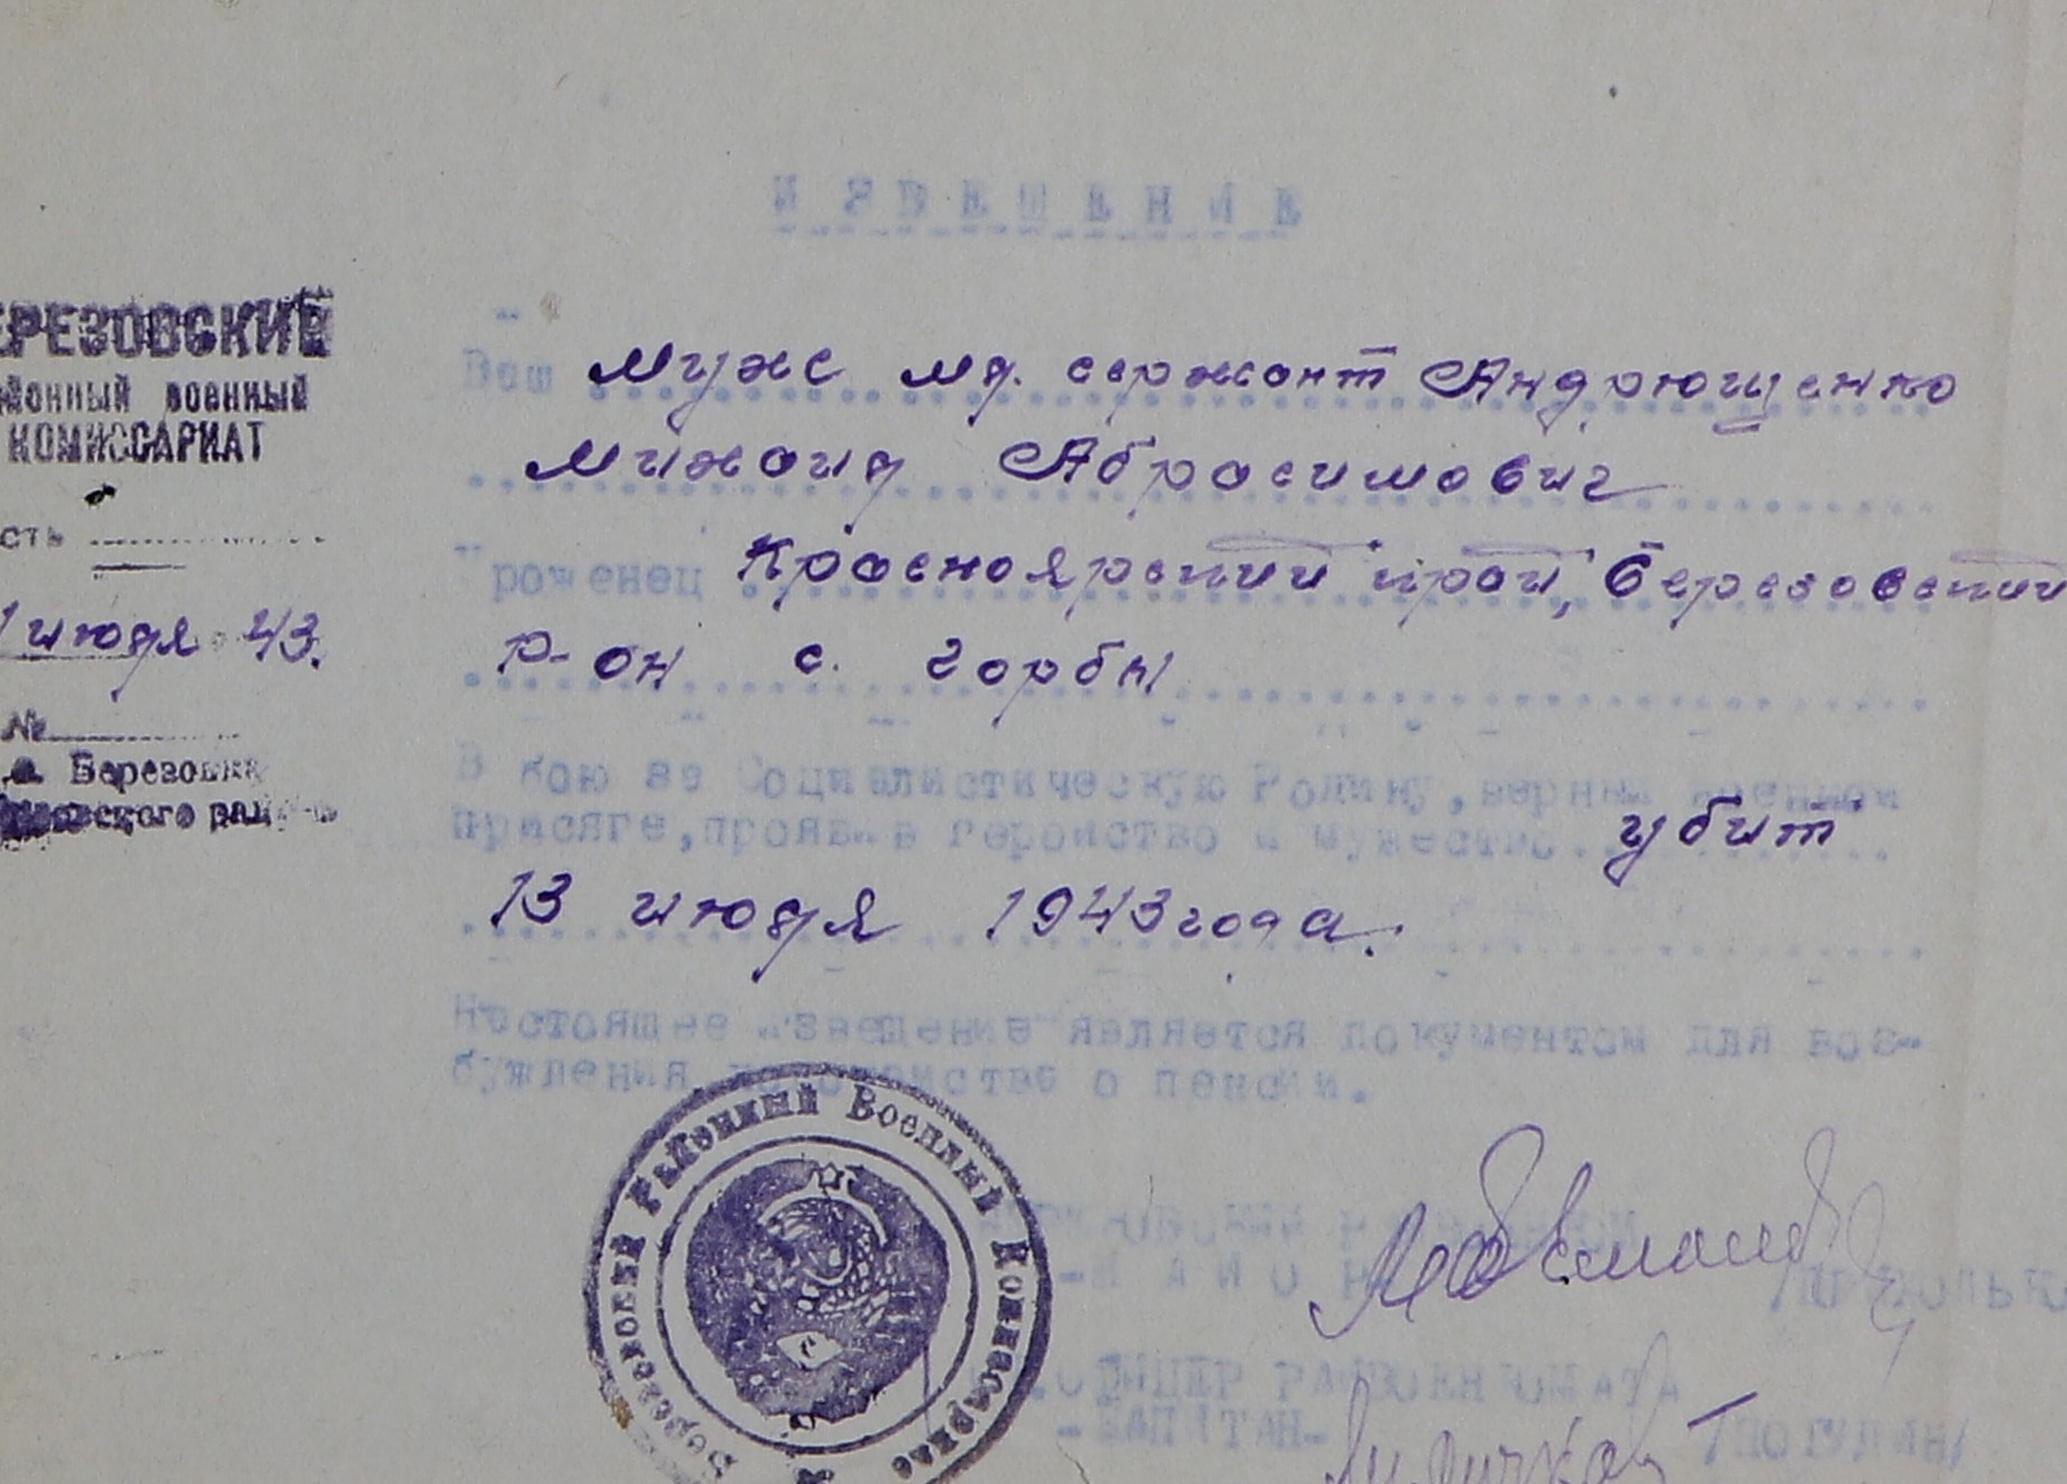 ИЗВЕЩЕНИЕ
ЕРЕЗОВСКИЙ
йонный военный
КОМИССАРИАТ
сть
1 июля 43.
№
Березовка
Ваш муж мл. сержант Андрющенко
Михаил Абрасимович
Уроженец Красноярский край, Березовский
р-он с. Горбы
В бою за Социалистическую Родину, верный военной
присяге, проявив героиство и мужество убит
13 июля 1943 года.
Настоящее извещение является документом для воз-
буждения ходатайства о пенсии.
Березовский Районный Военный Комиссариат
БЕРЕЗОВСКИЙ РАЙВОЕНКОМ
-МАЙОР-
ОФИЦЕР РАЙВОЕНКОМАТА
-КАПИТАН-